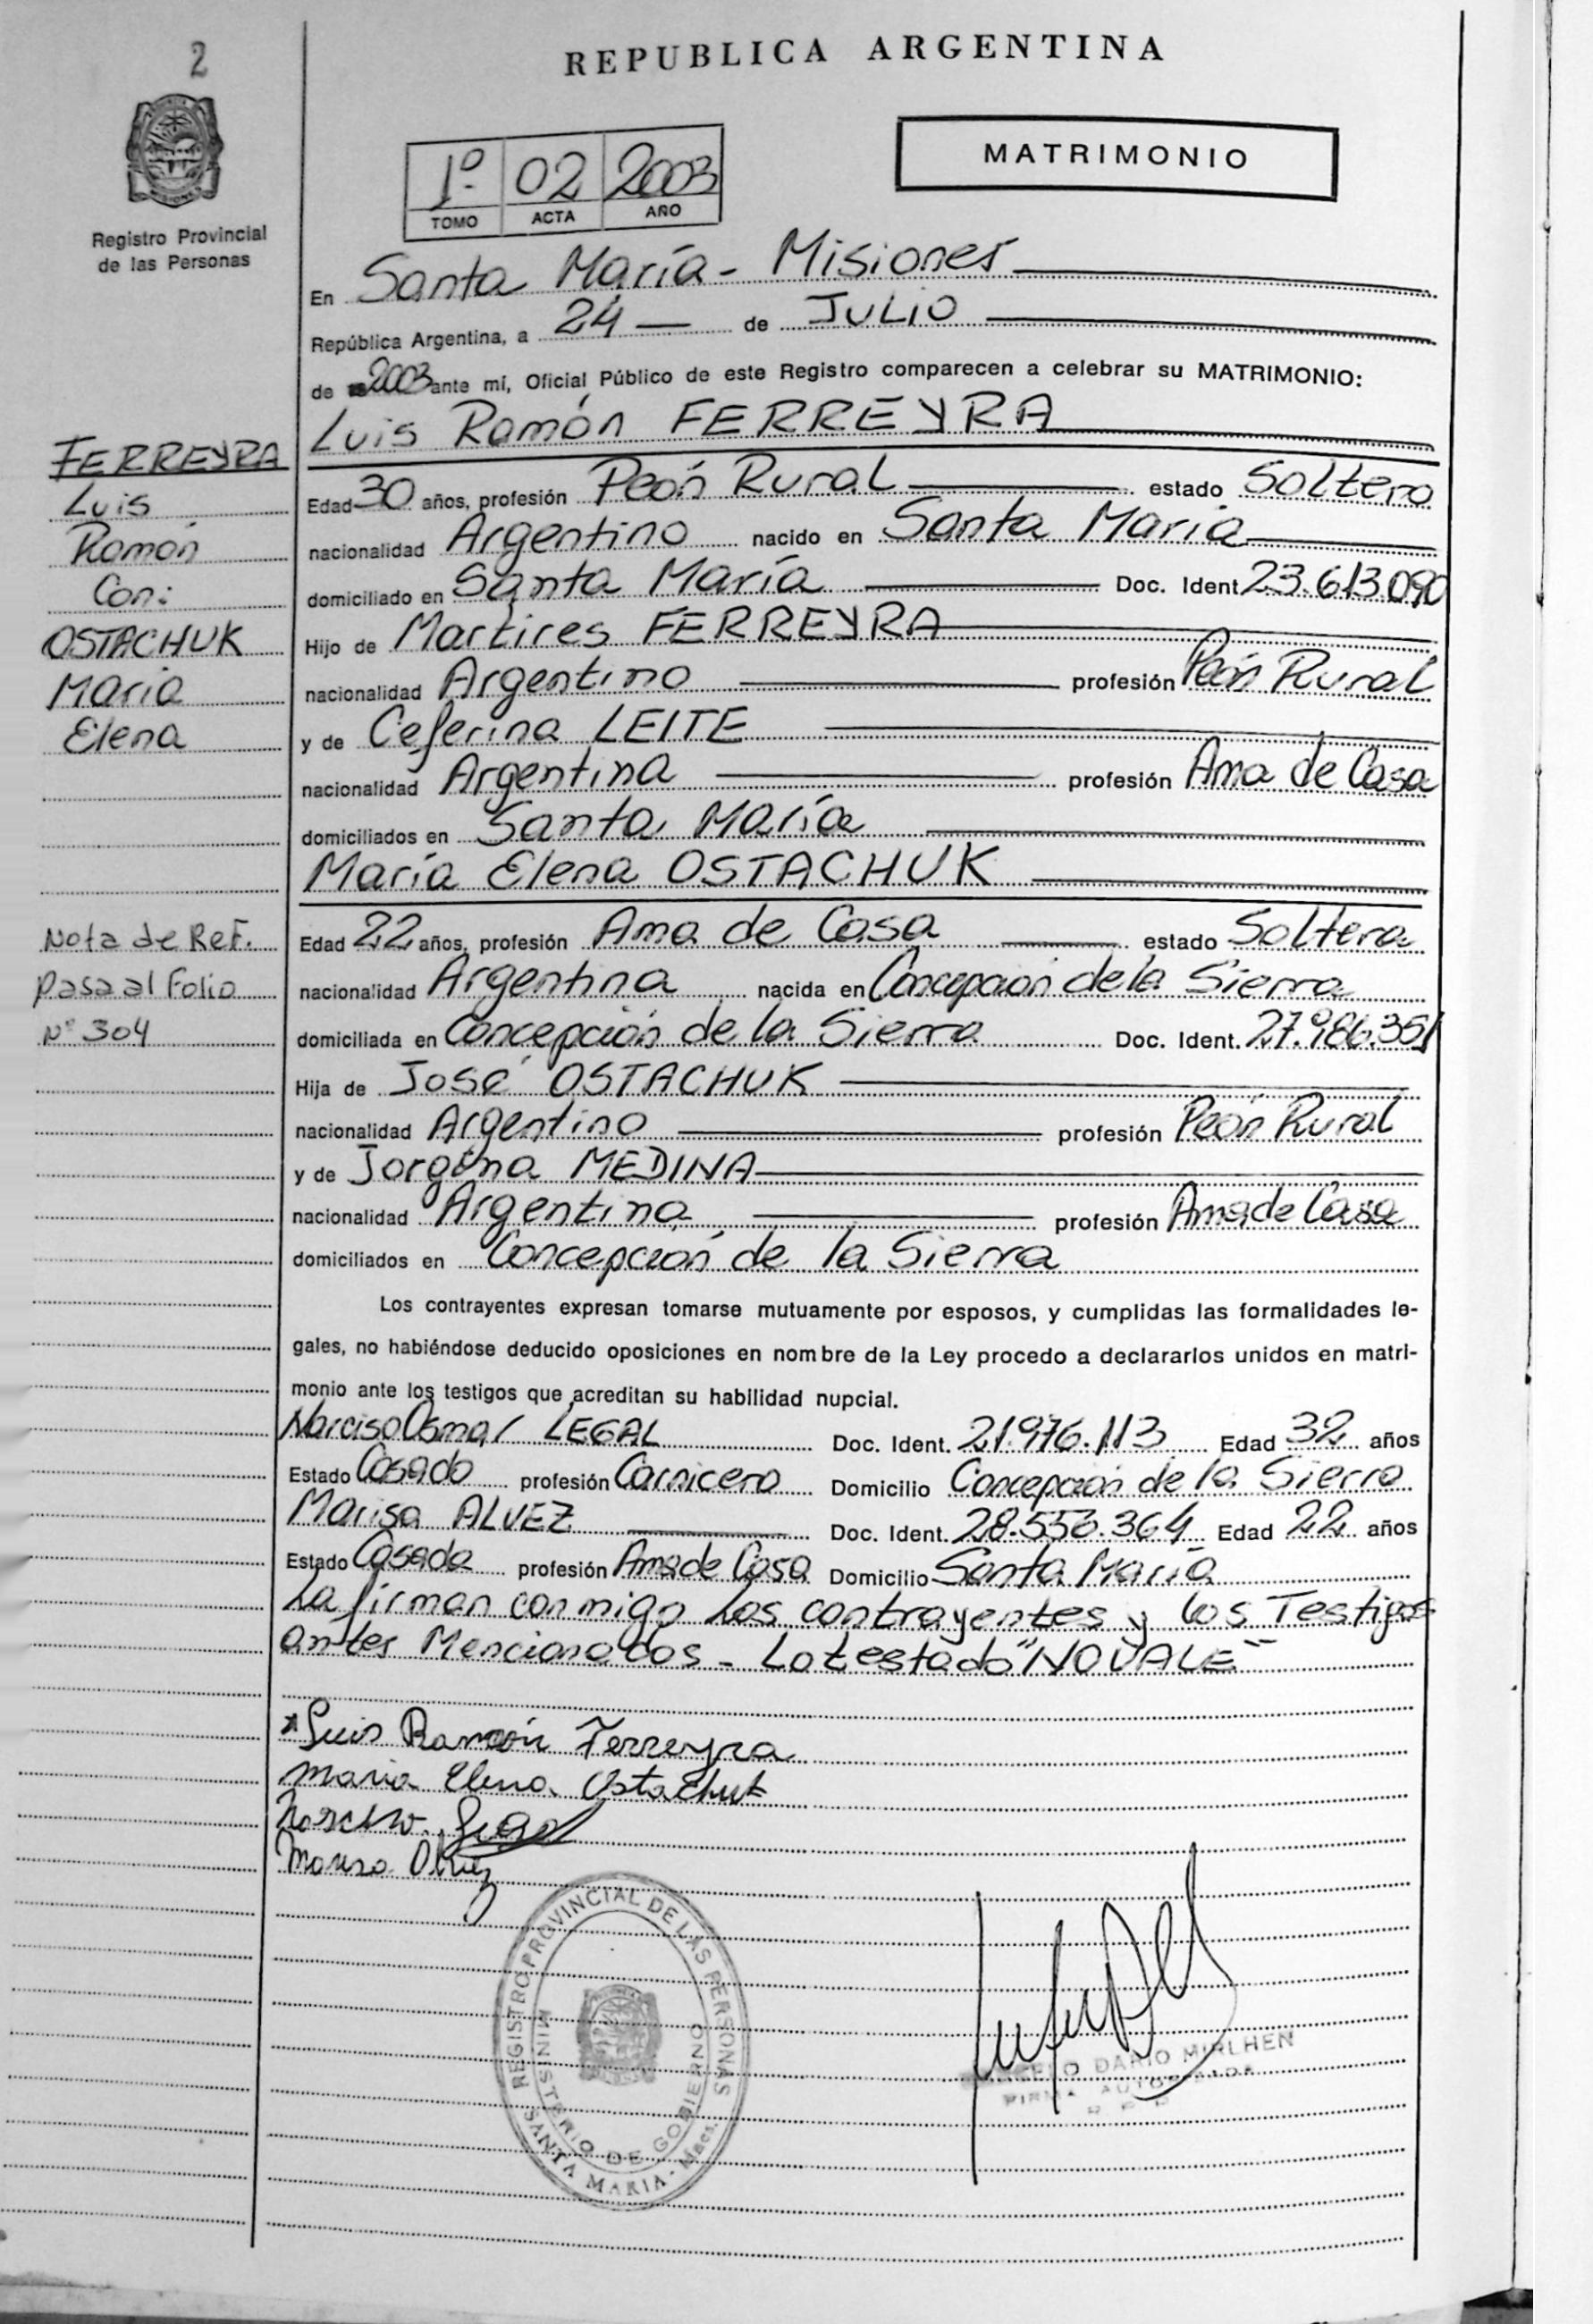 2
REPUBLICA ARGENTINA
MATRIMONIO
1º 02 2003
TOMO ACTA AÑO
Registro Provincial
de las Personas
En Santa María - Misiones
República Argentina, a 24 de JULIO
de 2003 ante mí, Oficial Público de este Registro comparecen a celebrar su MATRIMONIO:
Luis Ramón FERREYRA
FERREYRA
Luis
Ramón
Con:
OSTACHUK
Maria
Elena
Edad 30 años, profesión Peón Rural estado Soltero
nacionalidad Argentino nacido en Santa María
domiciliado en Santa María Doc. Ident. 23.613.090
Hijo de Martires FERREYRA
nacionalidad Argentino profesión Peón Rural
y de Ceferina LEITE
nacionalidad Argentina profesión Ama de Casa
domiciliados en Santa María
María Elena OSTACHUK
Nota de Ref.
pasa al Folio
Nº 304
Edad 22 años, profesión Ama de Casa estado Soltera
nacionalidad Argentina nacida en Concepción de la Sierra
domiciliada en Concepción de la Sierra Doc. Ident. 27.986.351
Hija de José OSTACHUK
nacionalidad Argentino profesión Peón Rural
y de Jorgina MEDINA
nacionalidad Argentina profesión Ama de Casa
domiciliados en Concepción de la Sierra
Los contrayentes expresan tomarse mutuamente por esposos, y cumplidas las formalidades le-
gales, no habiéndose deducido oposiciones en nombre de la Ley procedo a declararlos unidos en matri-
monio ante los testigos que acreditan su habilidad nupcial.
Narciso Osmar LEGAL Doc. Ident. 21.976.113 Edad 32 años
Estado Casado profesión Carnicero Domicilio Concepción de la Sierra
Marisa ALVEZ Doc. Ident. 28.553.364 Edad 22 años
Estado Casada profesión Ama de Casa Domicilio Santa María
La firman conmigo los contrayentes y los Testigos
antes Mencionados - Lo testado "NO VALE"
Luis Ramón Ferreyra
Maria Elena Ostachuk
Marisa
REGISTRO PROVINCIAL DE LAS PERSONAS
MINISTERIO DE GOBIERNO
SANTA MARIA - Mnes.
DARIO MIRLHEN
FIRMA AUTORIZADA